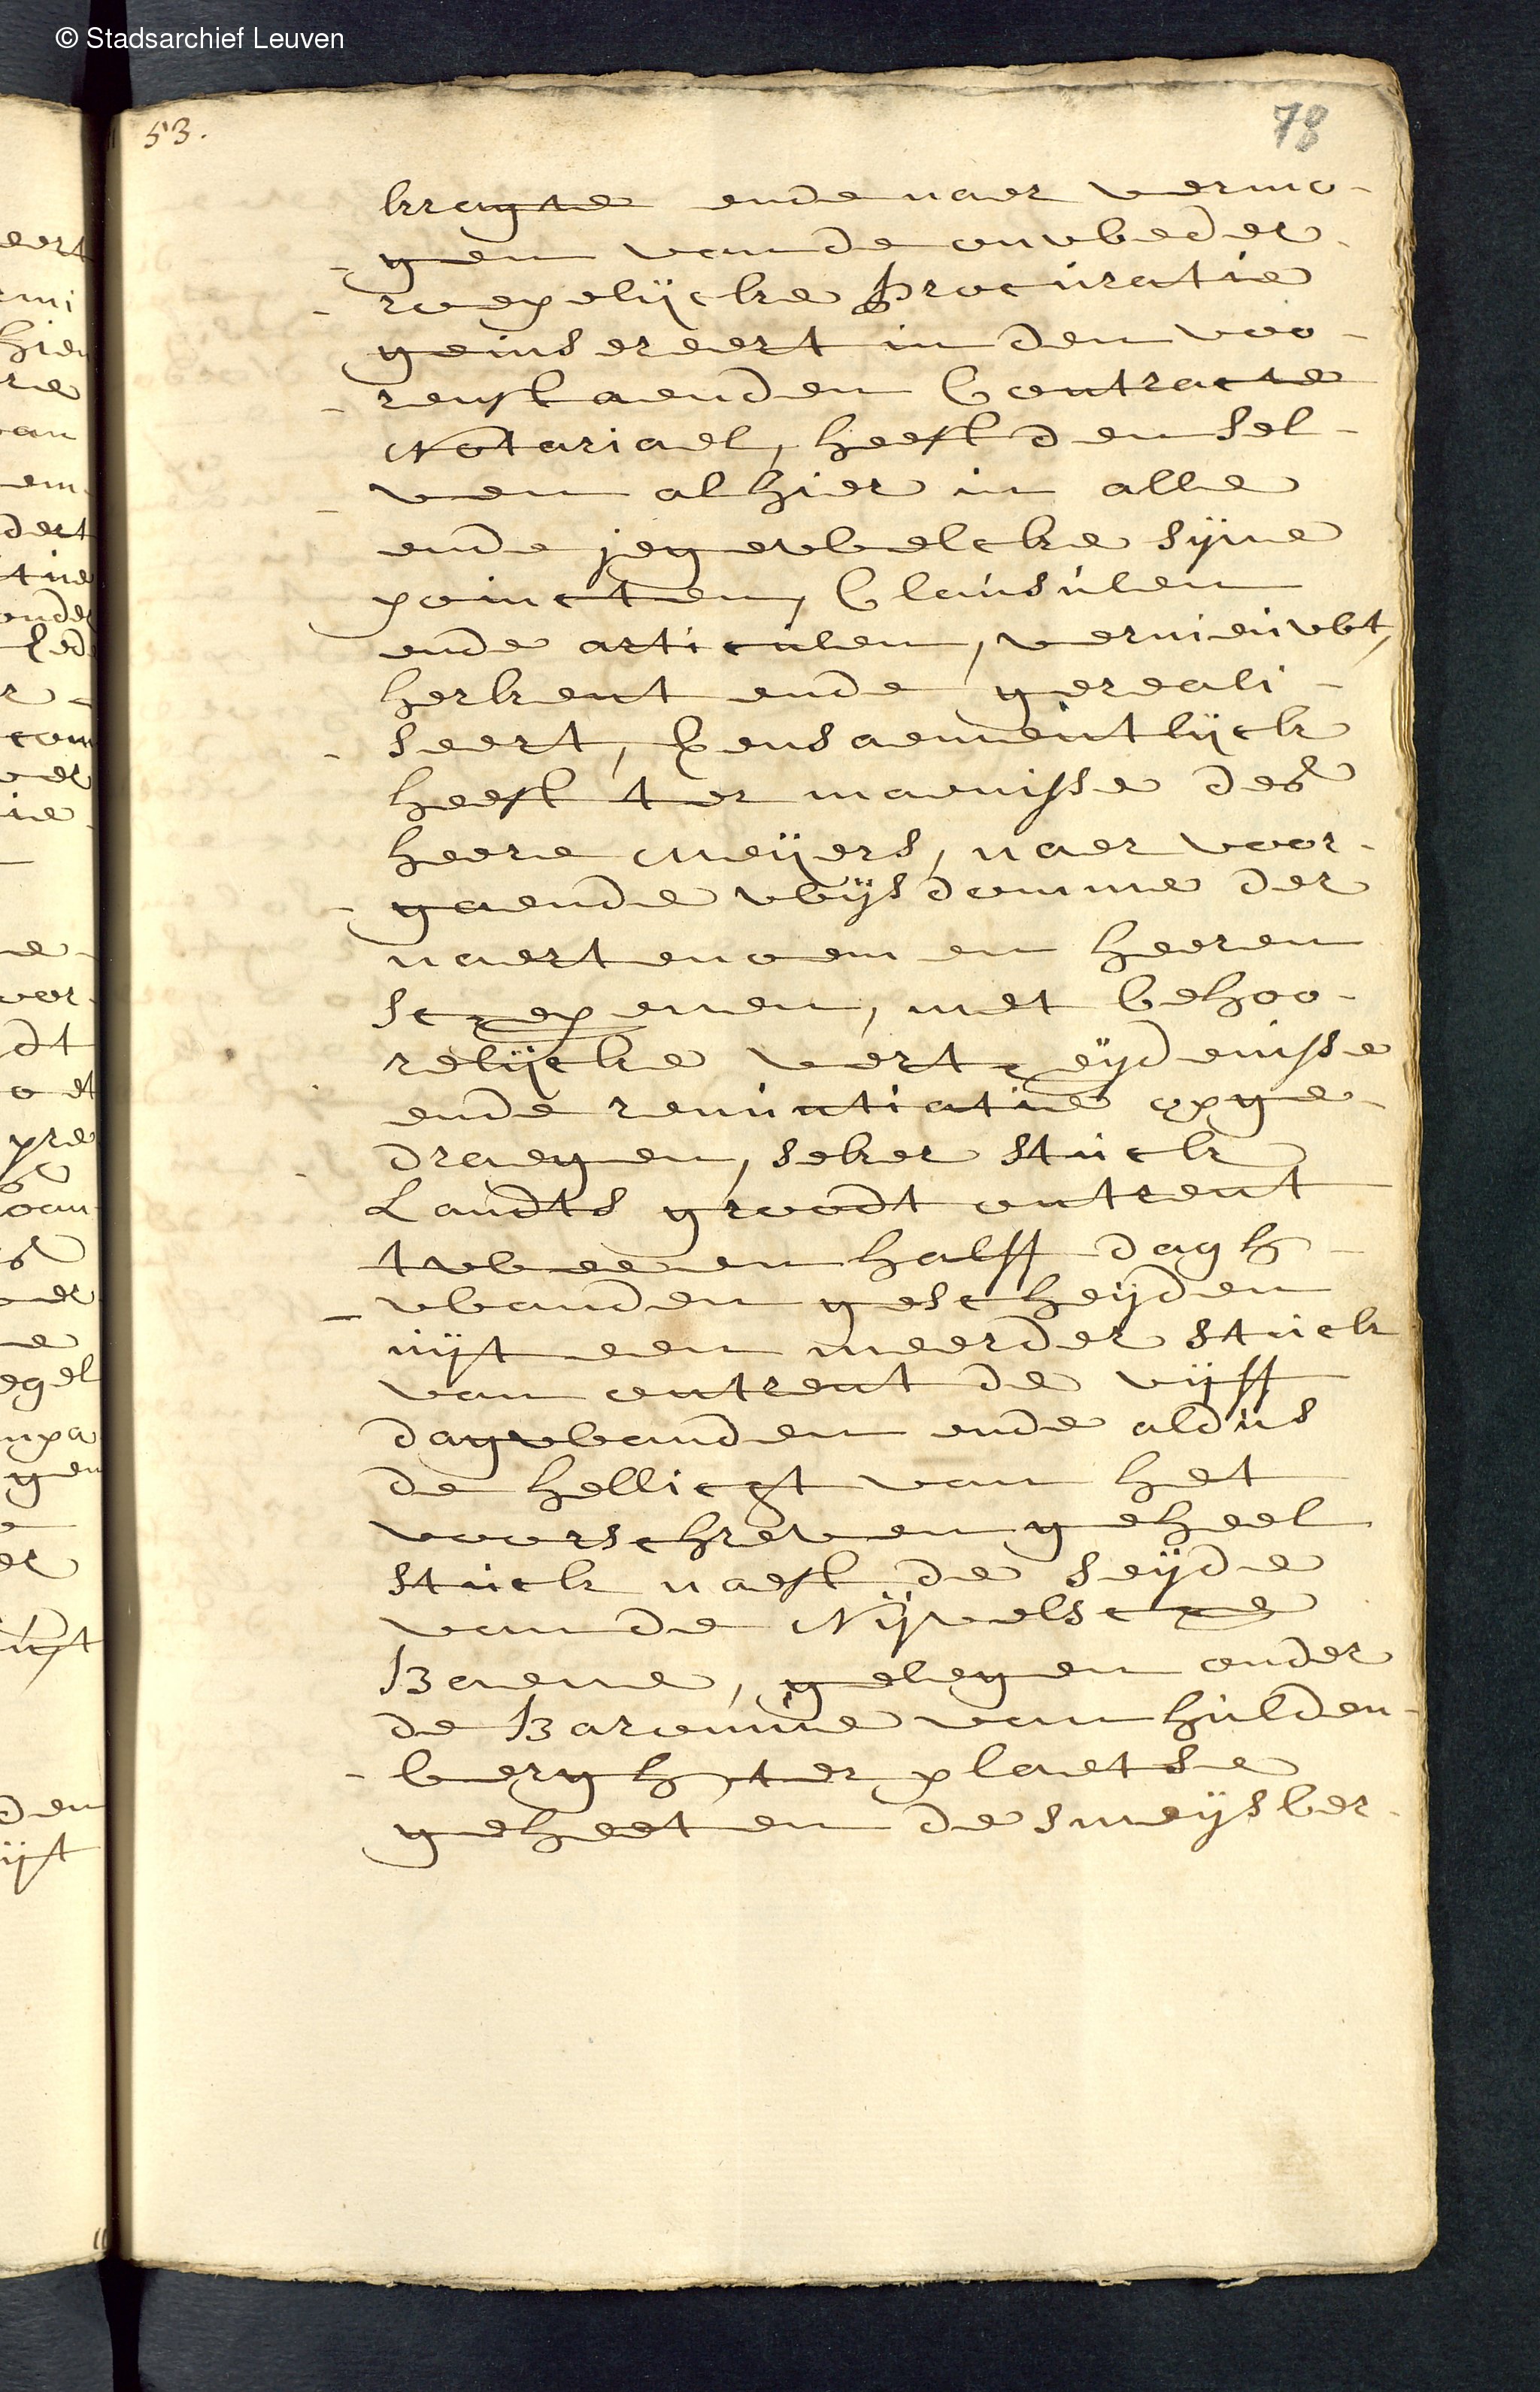 © Stadsarchief Leuven
53.
78
kragte ende naer vermo-
-gen vande onwbeder-
-roepelijcke procuratie
geinsereert in den voo-
-renstaenden Contracte
Notariael, heeft den sel-
-ven alhier in alle
ende jegewbelcke sijne
poincten, Clausulen
ende articulen, vernieuwbt,
herkent ende gereali-
-seert, Eensaementlijck
heeft ter maenisse des
heere meijers, naer voor-
-gaende wbijsdomme der
naertenoemen heeren
scepenen, met behoo-
relijcke verteijdenisse
ende renuntiatie opge-
-draegen, seker stuck
Landts groodt ontrent
twbeeenhalff dagh-
-wbanden gescheijden
uijt een meerder stuck
van ontrent de vijff
dagwbanden ende aldus
de hellicgt van het
voorschreven geheel
stuck naest de seijde
vande Nijvelsche
Baene, gelegen onder
de Baronnie van huldenbergh
-bergh, ter plaetse
geheeten de smeijsber-
eert
hier
re
van
dert
onder
voor
dt
pre
egel
gen
den